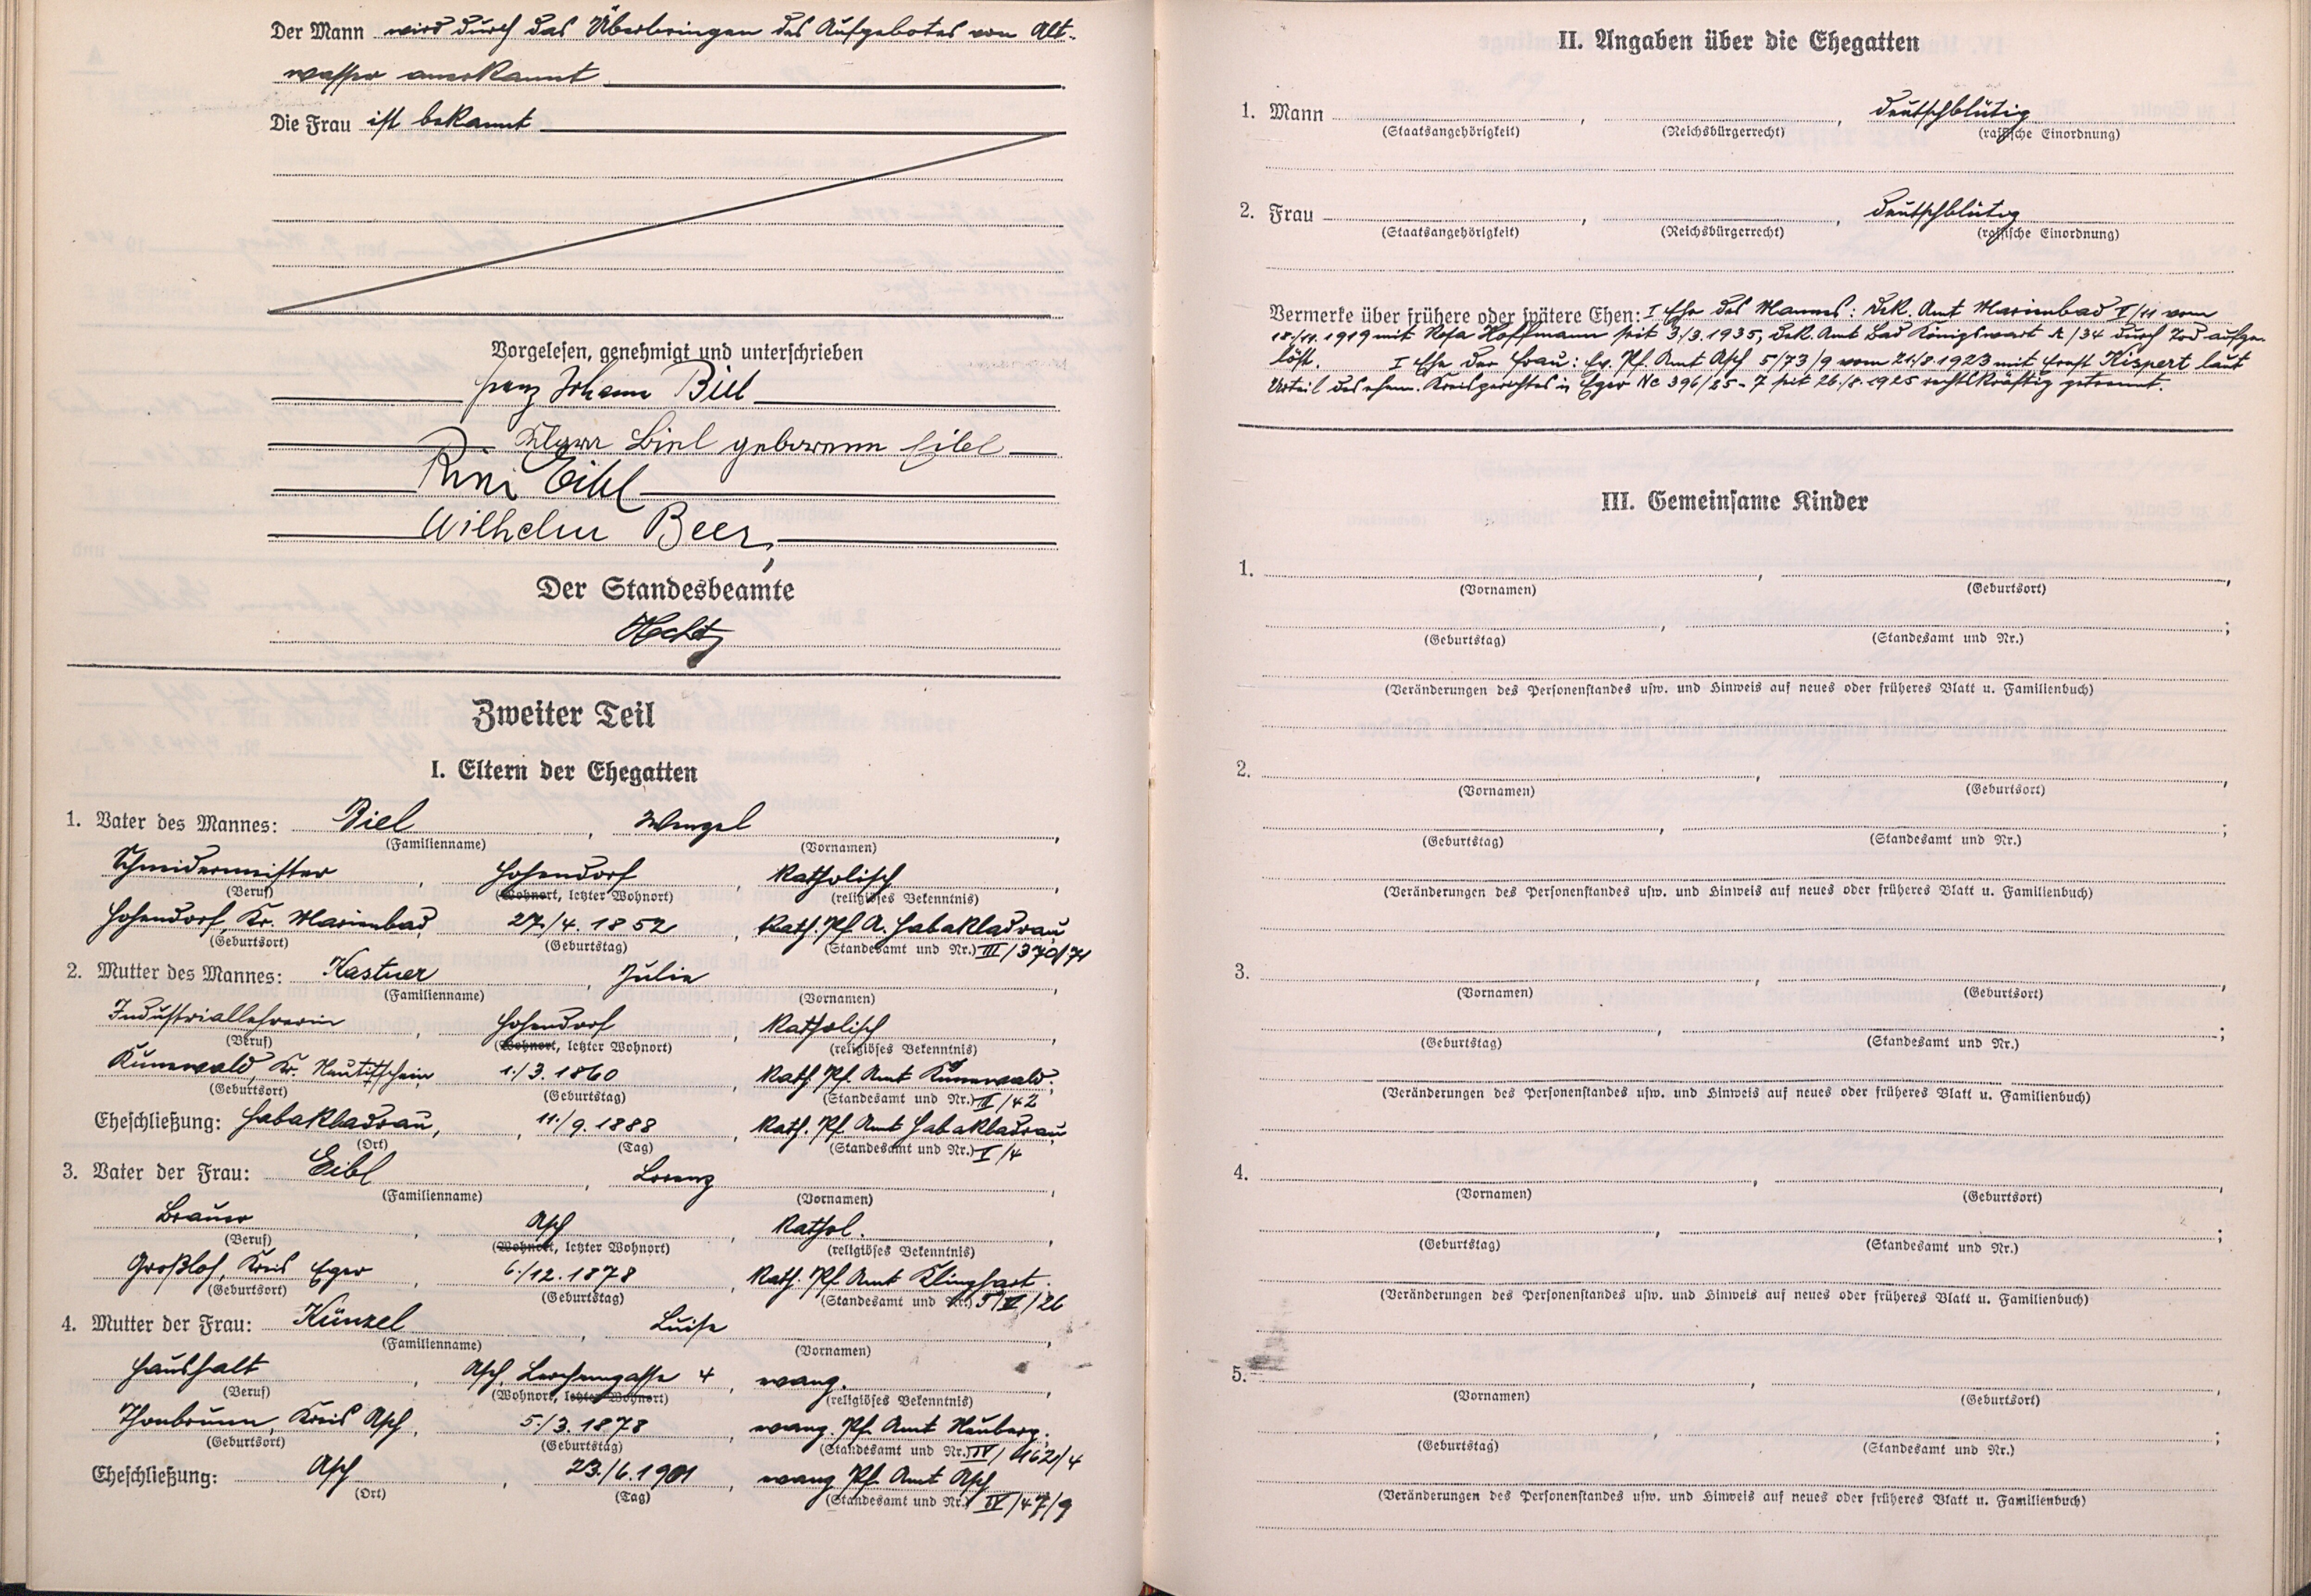 Der Mann wird durch das Überbringen des Aufgebotes von Alt-
wasser anerkannt
Die Frau ist bekannt
Vorgelesen, genehmigt und unterschrieben
Franz Johann Biel
Biel geborene Eibl
Rini Eibl
Wilhelm Beer,
Der Standesbeamte
Zweiter Teil
I. Eltern der Ehegatten
1. Vater des Mannes: Biel, Wenzel,
(Familienname) (Vornamen)
Schneidermeister, Hohendorf, katholisch,
(Beruf) (Wohnort, letzter Wohnort) (religiöses Bekenntnis)
Hohendorf, Kr. Marienbad, 27./4. 1852, Kath. Pf. A. Habakladrau,
(Geburtsort) (Geburtstag) (Standesamt und Nr.) III/370/71
2. Mutter des Mannes: Kastner, Julie,
(Familienname) (Vornamen)
Industriallehrerin, Hohendorf, katholisch,
(Beruf) (Wohnort, letzter Wohnort) (religiöses Bekenntnis)
Kunewald, Kr. Neutitschein, 1./3. 1860, Kath. Pf. Amt Kunewald;
(Geburtsort) (Geburtstag) (Standesamt und Nr.) II/42
Eheschließung: Habakladrau, 11./9. 1888, Kath. Pf. Amt Habakladrau,
(Ort) (Tag) (Standesamt und Nr.) I/4
3. Vater der Frau: Eibl, Lorenz,
(Familienname) (Vornamen)
Brauer, Asch, kathol.,
(Beruf) (Wohnort, letzter Wohnort) (religiöses Bekenntnis)
Großloh, Kreis Eger, 6./12. 1878, Kath. Pf. Amt Klinghart;
(Geburtsort) (Geburtstag) (Standesamt und Nr.) 5/V/26
4. Mutter der Frau: Künzel, Luise,
(Familienname) (Vornamen)
Haushalt, Asch, Lerchengasse 4, evang.,
(Beruf) (Wohnort, letzter Wohnort) (religiöses Bekenntnis)
Thonbrunn, Kreis Asch, 5./3. 1878, evang. Pf. Amt Neuberg;
(Geburtsort) (Geburtstag) (Standesamt und Nr.) IV/162/4
Eheschließung: Asch, 23./6. 1901, evang. Pf. Amt Asch
(Ort) (Tag) (Standesamt und Nr.) IV/47/9
II. Angaben über die Ehegatten
1. Mann, , deutschblütig
(Staatsangehörigkeit) (Reichsbürgerrecht) (rassische Einordnung)
2. Frau, , deutschblütig
(Staatsangehörigkeit) (Reichsbürgerrecht) (rassische Einordnung)
Vermerke über frühere oder spätere Ehen: I Ehe des Mannes: Dek. Amt Marienbad V/11 vom
18./11. 1919 mit Rosa Hoffmann seit 3./3. 1935, Dek. Amt Bad Königswart A/34 durch Tod aufge-
löst. I Ehe der Frau: Ev. Pf. Amt Asch 5/73/9 vom 21./8. 1923 mit Ernst Kispert laut
Urteil des ehem. Kreisgerichtes in Eger Nc 396/25-7 seit 26./8. 1925 rechtskräftig getrennt.
III. Gemeinsame Kinder
1. , ,
(Vornamen) (Geburtsort)
, ;
(Geburtstag) (Standesamt und Nr.)
(Veränderungen des Personenstandes usw. und Hinweis auf neues oder früheres Blatt u. Familienbuch)
2. , ,
(Vornamen) (Geburtsort)
, ;
(Geburtstag) (Standesamt und Nr.)
(Veränderungen des Personenstandes usw. und Hinweis auf neues oder früheres Blatt u. Familienbuch)
3. , ,
(Vornamen) (Geburtsort)
, ;
(Geburtstag) (Standesamt und Nr.)
(Veränderungen des Personenstandes usw. und Hinweis auf neues oder früheres Blatt u. Familienbuch)
4. , ,
(Vornamen) (Geburtsort)
, ;
(Geburtstag) (Standesamt und Nr.)
(Veränderungen des Personenstandes usw. und Hinweis auf neues oder früheres Blatt u. Familienbuch)
5. , ,
(Vornamen) (Geburtsort)
, ;
(Geburtstag) (Standesamt und Nr.)
(Veränderungen des Personenstandes usw. und Hinweis auf neues oder früheres Blatt u. Familienbuch)